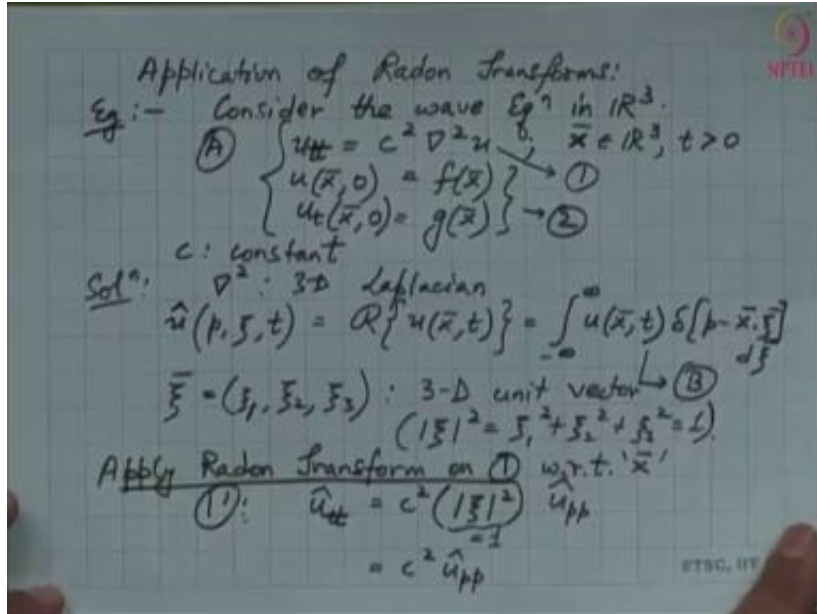 Application of Radon Transforms:
NPTEL
Eg:- Consider the wave Eqⁿ in ℝ³.
Ⓐ { u_tt = c² ∇² u ; x̄ ∈ ℝ³, t > 0
u(x̄, 0) = f(x̄) } → ①
u_t(x̄, 0) = g(x̄) } → ②
c : constant
Solⁿ: ∇² : 3-D Laplacian
û(p, ξ, t) = R{u(x̄, t)} = ∫_{-∞}^{∞} u(x̄, t) δ[p - x̄·ξ̄] dξ̄
ξ̄ = (ξ₁, ξ₂, ξ₃) : 3-D unit vector → Ⓑ
(|ξ|² = ξ₁² + ξ₂² + ξ₃² = 1).
Apply Radon Transform on ① w.r.t. 'x̄'
①': û_tt = c² (|ξ|²) û_pp
= 1
= c² û_pp
ETSC, IIT